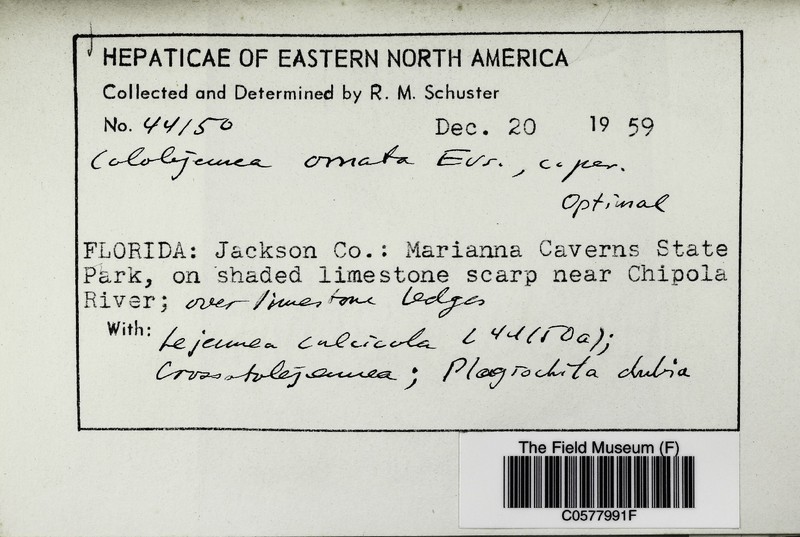 HEPATICAE OF EASTERN NORTH AMERICA
Collected and Determined by R. M. Schuster
No. 44150 Dec. 20 1959
Cololejeunea ornata Evs., c. per.
Optimal
FLORIDA: Jackson Co.: Marianna Caverns State
Park, on shaded limestone scarp near Chipola
River; over limestone ledges
With: Lejeunea calcicola (44150a);
Crossotolejeunea; Plagiochila dubia
The Field Museum (F)
C0577991F